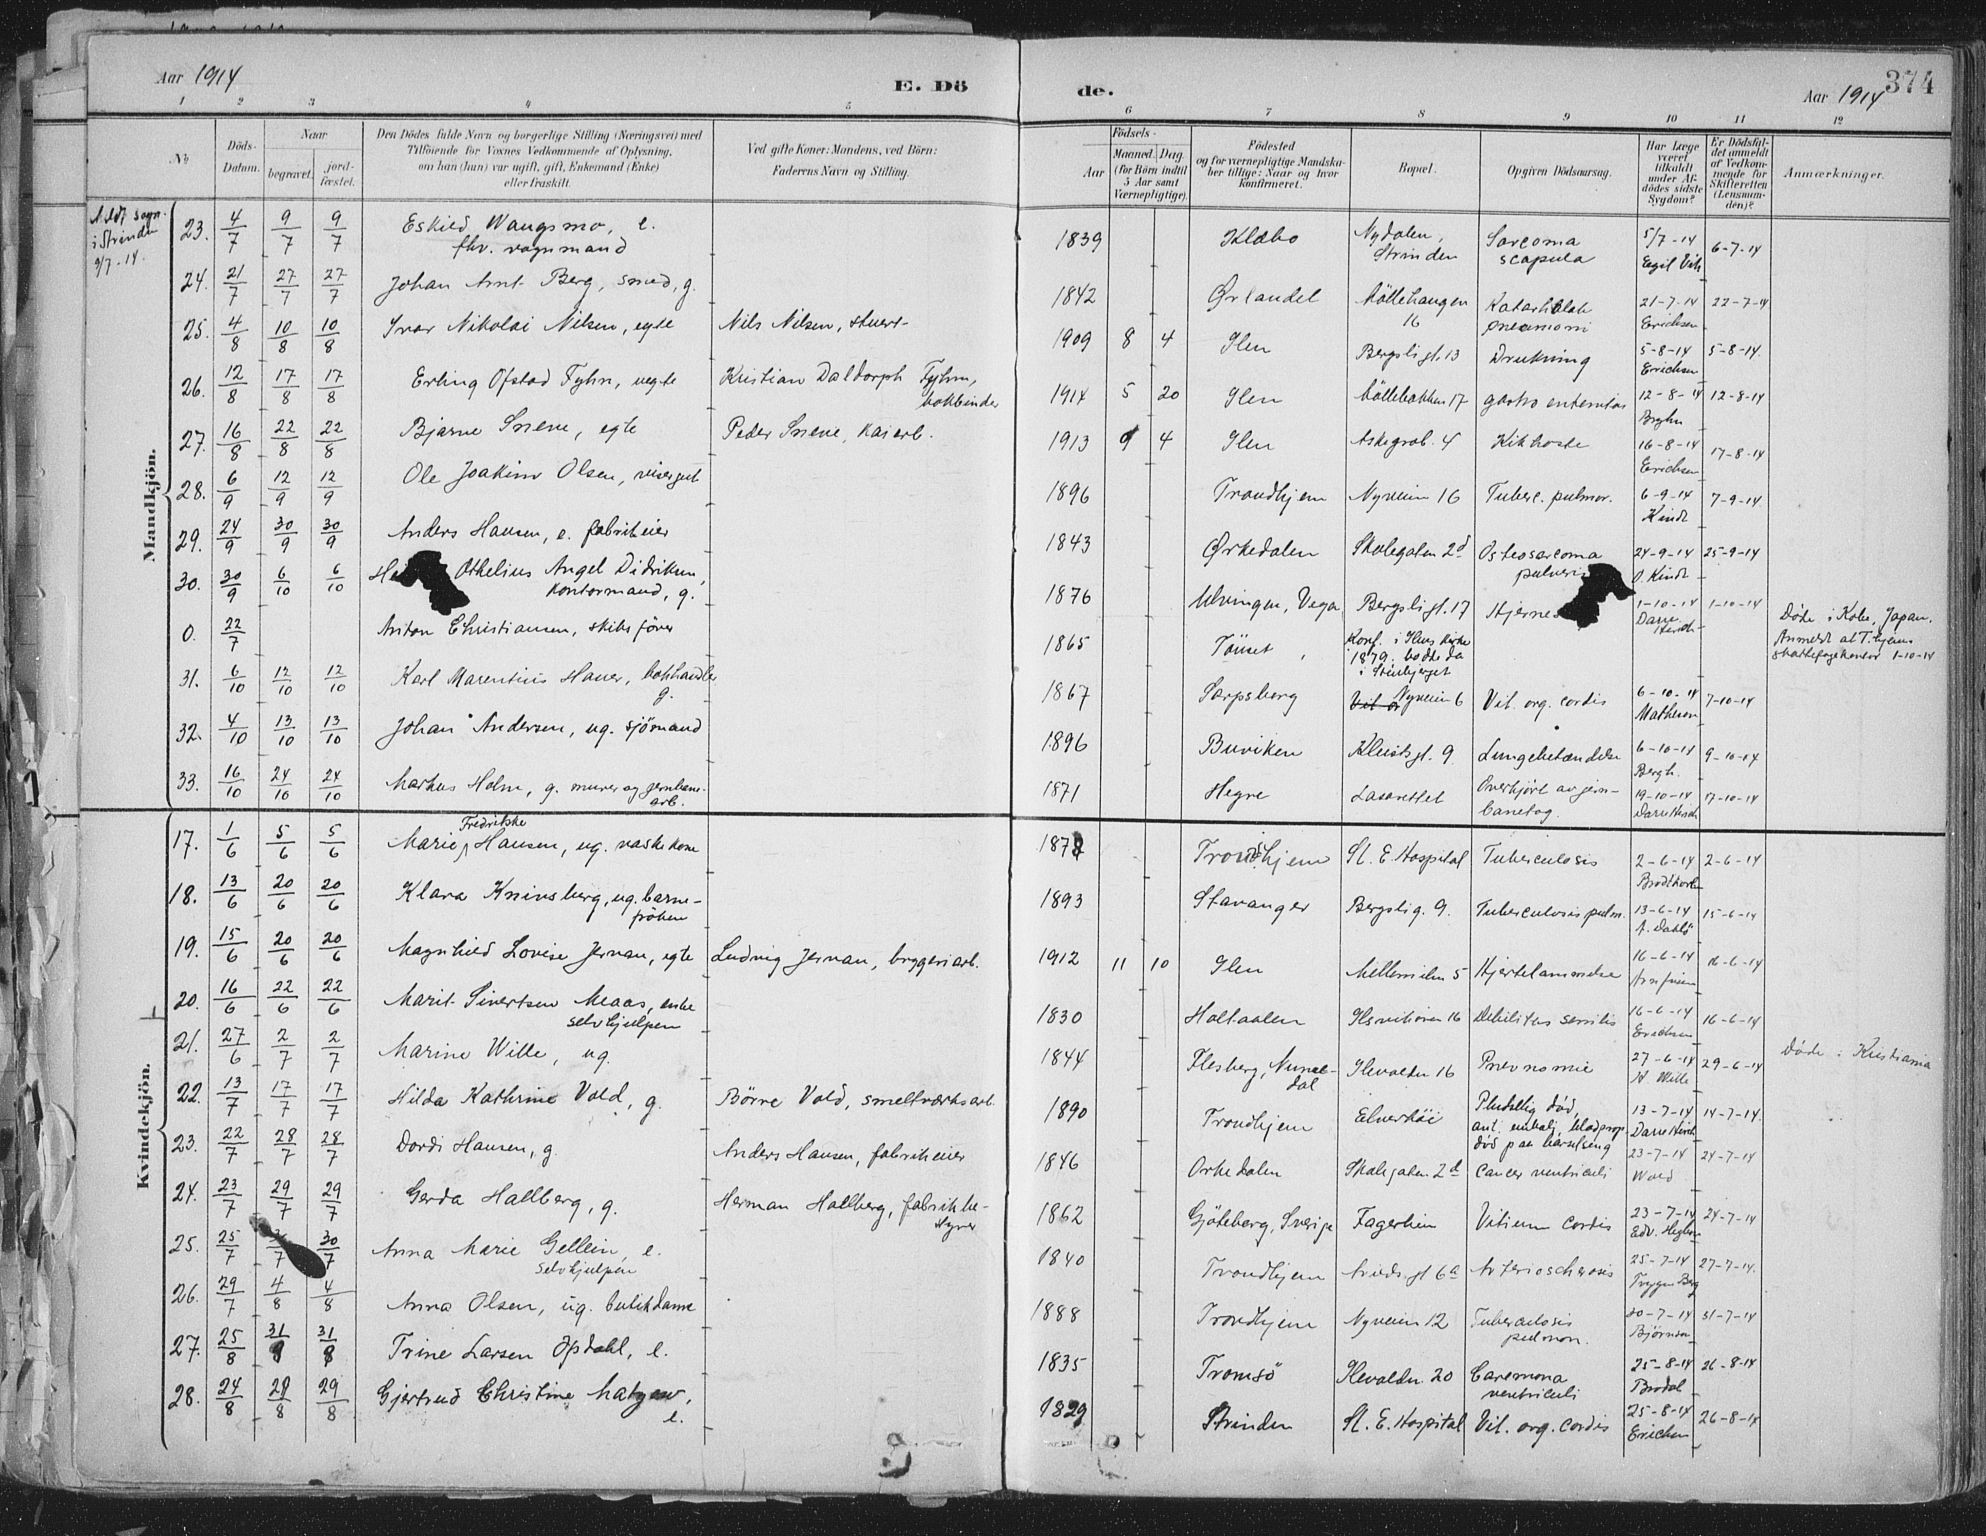 Aar 1914
E. Dö de.
Aar 1914
374
1 2 3 4 5 6 7 8 9 10 11 12
No
Döds-Datum.
Naar
begravet. jord-fæstet.
Den Dödes fulde Navn og borgerlige Stilling (Næringsvei) med
Tilföiende for Voxnes Vedkommende af Oplysning,
om han (hun) var ugift, gift, Enkemand (Enke)
eller fraskilt.
Ved gifte Koner: Mandens, ved Börn:
Faderens Navn og Stilling.
Födsels-
Aar Maaned. Dag.
(for Börn indtil
5 Aar samt
Værnepligtige).
Födested
og for værnepligtige Mandska-
ber tillige: Naar og hvor
konfirmeret.
Bopæl.
Opgiven Dödsaarsag.
Har Læge
været
tilkaldt
under Af-
dödes sidste
Sygdom?
Er Dödsfal-
det anmeldt
af Vedkom-
mende for
Skifteretten
(Lensman-
den)?
Anmærkninger.
Mandkjön.
i Strinden
9/7-14.
23. 4/7 9/7 9/7 Eskild Waugsmo, e. fhv. vognmand 1839 Klæbo Nydalen, Strinden Sarcoma scapula 5/7-14 Egil 6-7-14
24. 21/7 27/7 27/7 Johan Arnt Berg, smed, g. 1842 Ørlandet Möllehaugen 16 21-7-14 Erichsen 22-7-14
25. 4/8 10/8 10/8 Ivar Nikolai Nilsen, egte Nils Nilsen, stuert 1909 8 4 Ilen Bergsligt. 13 Drukning 5-8-14 Erichsen 5-8-14.
26. 12/8 17/8 17/8 Erling Ofstad Fyhn, uegte Kristian Daldorph Fyhn, bokbinder 1914 5 20 Ilen Möllebakken 17 gastro enteritis 12-8-14 Bryhn 12-8-14
27. 16/8 22/8 22/8 Bjarne Snene, egte Peder Snene, kaiarb. 1913 9 4 Ilen 4 Kikhoste 16-8-14 Erichsen 17-8-14
28. 6/9 12/9 12/9 Ole Joakim Olsen, visergut 1896 Trondhjem Nyveien 16 Tuberc. pulmon. 6-9-14 Kindt 7-9-14
29. 24/9 30/9 30/9 Anders Hansen, e. fabrikeier 1843 Ørkedalen Skolegaten 2d Osteosarcoma 24-9-14 O. Kindt 25-9-14
30. 30/9 6/10 6/10 Othelius Angel Didriksen, kontormand, g. 1876 Ulvingen, Vega Bergsligt. 17 1-10-14 1-10-14
0. 22/7 Anton Christiansen, skibsförer 1865 Tönset Konf. i Ilens Kirke 1879, bodde da i Stenbjerget Döde i Kobe, Japan. Anmeldt at T.hjems 1-10-14
31. 6/10 12/10 12/10 Karl Marentius Hauer, bokhandler g. 1867 Sarpsborg Nyveien 6 Vit. org. cordis 6-10-14 Matheson 7-10-14
32. 4/10 13/10 13/10 Johan Andersen, ug. sjömand 1896 Buviken Klostergt. 9 Lungebetændelse 6-10-14 Bergh. 9-10-14
33. 16/10 24/10 24/10 Markus Holm, g. murer og jernbane-arb. 1871 Hegre Lasarettet Overkjört av jern-banetog. 19-10-14 17-10-14
Kvindekjön.
17. 1/6 5/6 5/6 Marie Fredrikke Hansen, ug. vaskekone 1878 Trondhjem St. E. Hospital Tuberculosis 2-6-14 2-6-14
18. 13/6 20/6 20/6 Klara Kninsberg, ug. barne-fröken 1893 Stavanger Bergslig. 9. Tuberculosis pulm. 13-6-14 15-6-14
19. 15/6 20/6 20/6 Magnhild Lovise Jervan, egte Ludvig Jervan, bryggeriarb. 1912 11 10 Ilen Mellemilen 5 Hjertelammelse 16-6-14 16-6-14
20. 16/6 22/6 22/6 Marit Sivertsen Meaas, enke selvhjulpen 1830 Holtaalen Ilsvikören 16 Debilitas senilis 16-6-14 Erichsen 16-6-14
21. 27/6 2/7 2/7 Marine Wille, ug. 1844 Flesberg, Numedal Ilevolden 16 Pnevmonie 27-6-14 H. Wille 29-6-14 Döde i Kristiania
22. 13/7 17/7 17/7 Hilda Kathrine Vold, g. Börre Vold, smelteverksarb. 1890 Trondhjem Elverhöi Pludselig död, 13-7-14 14-7-14.
23. 22/7 28/7 28/7 Dordi Hansen, g. Anders Hansen, fabrikeier 1846 Orkedalen Skolegaten 2d Cancer ventriculi 23-7-14 Wold 24-7-14
24. 23/7 29/7 29/7 Gerda Hallberg, g. Herman Hallberg, fabrikbe-styrer 1862 Göteborg, Sverige Fagerheim Vitium cordis 23-7-14 24-7-14
25. 25/7 30/7 Anna Marie Gellein, e. selvhjulpen 1840 Trondhjem 6a Arterioscherosis 25-7-14 Trygve Berg 27-7-14.
26. 29/7 4/8 4/8 Anna Olsen, ug. butikdame 1888 Trondhjem Nyveien 12 Tuberculosis pulmon. 30-7-14 Björnson 31-7-14
27. 25/8 31/8 31/8 Trine Larsen Opdahl, e. 1835 Tromsö Ilevolden 20 ventriculi 25-8-14 Brodal 26-8-14
28. 24/8 29/8 29/8 Gjertrud Christine e. 1829 Strinden St. E. Hospital Vit. org. cordis 25-8-14 Erichsen 26-8-14